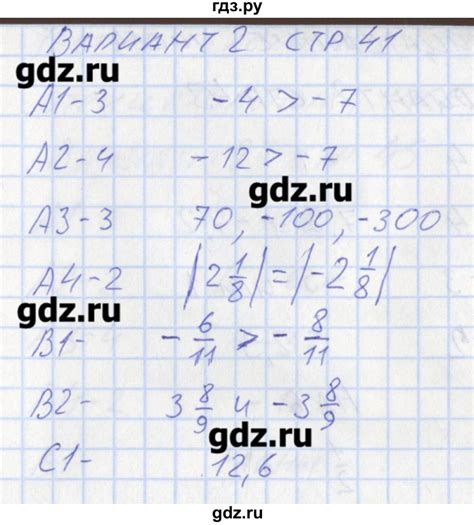 гдз.ру
ВАРИАНТ 2 СТР 41
gdz.ru
А1-3 -4 > -7
А2-4 -12 > -7
gdz.ru
А3-3 70, -100, -300
А4-2 |2 1/8| = |-2 1/8|
gdz.ru
В1- -6/11 > -8/11
В2- 3 8/9 и -3 8/9
gdz.ru
С1- 12,6
гдз.ру